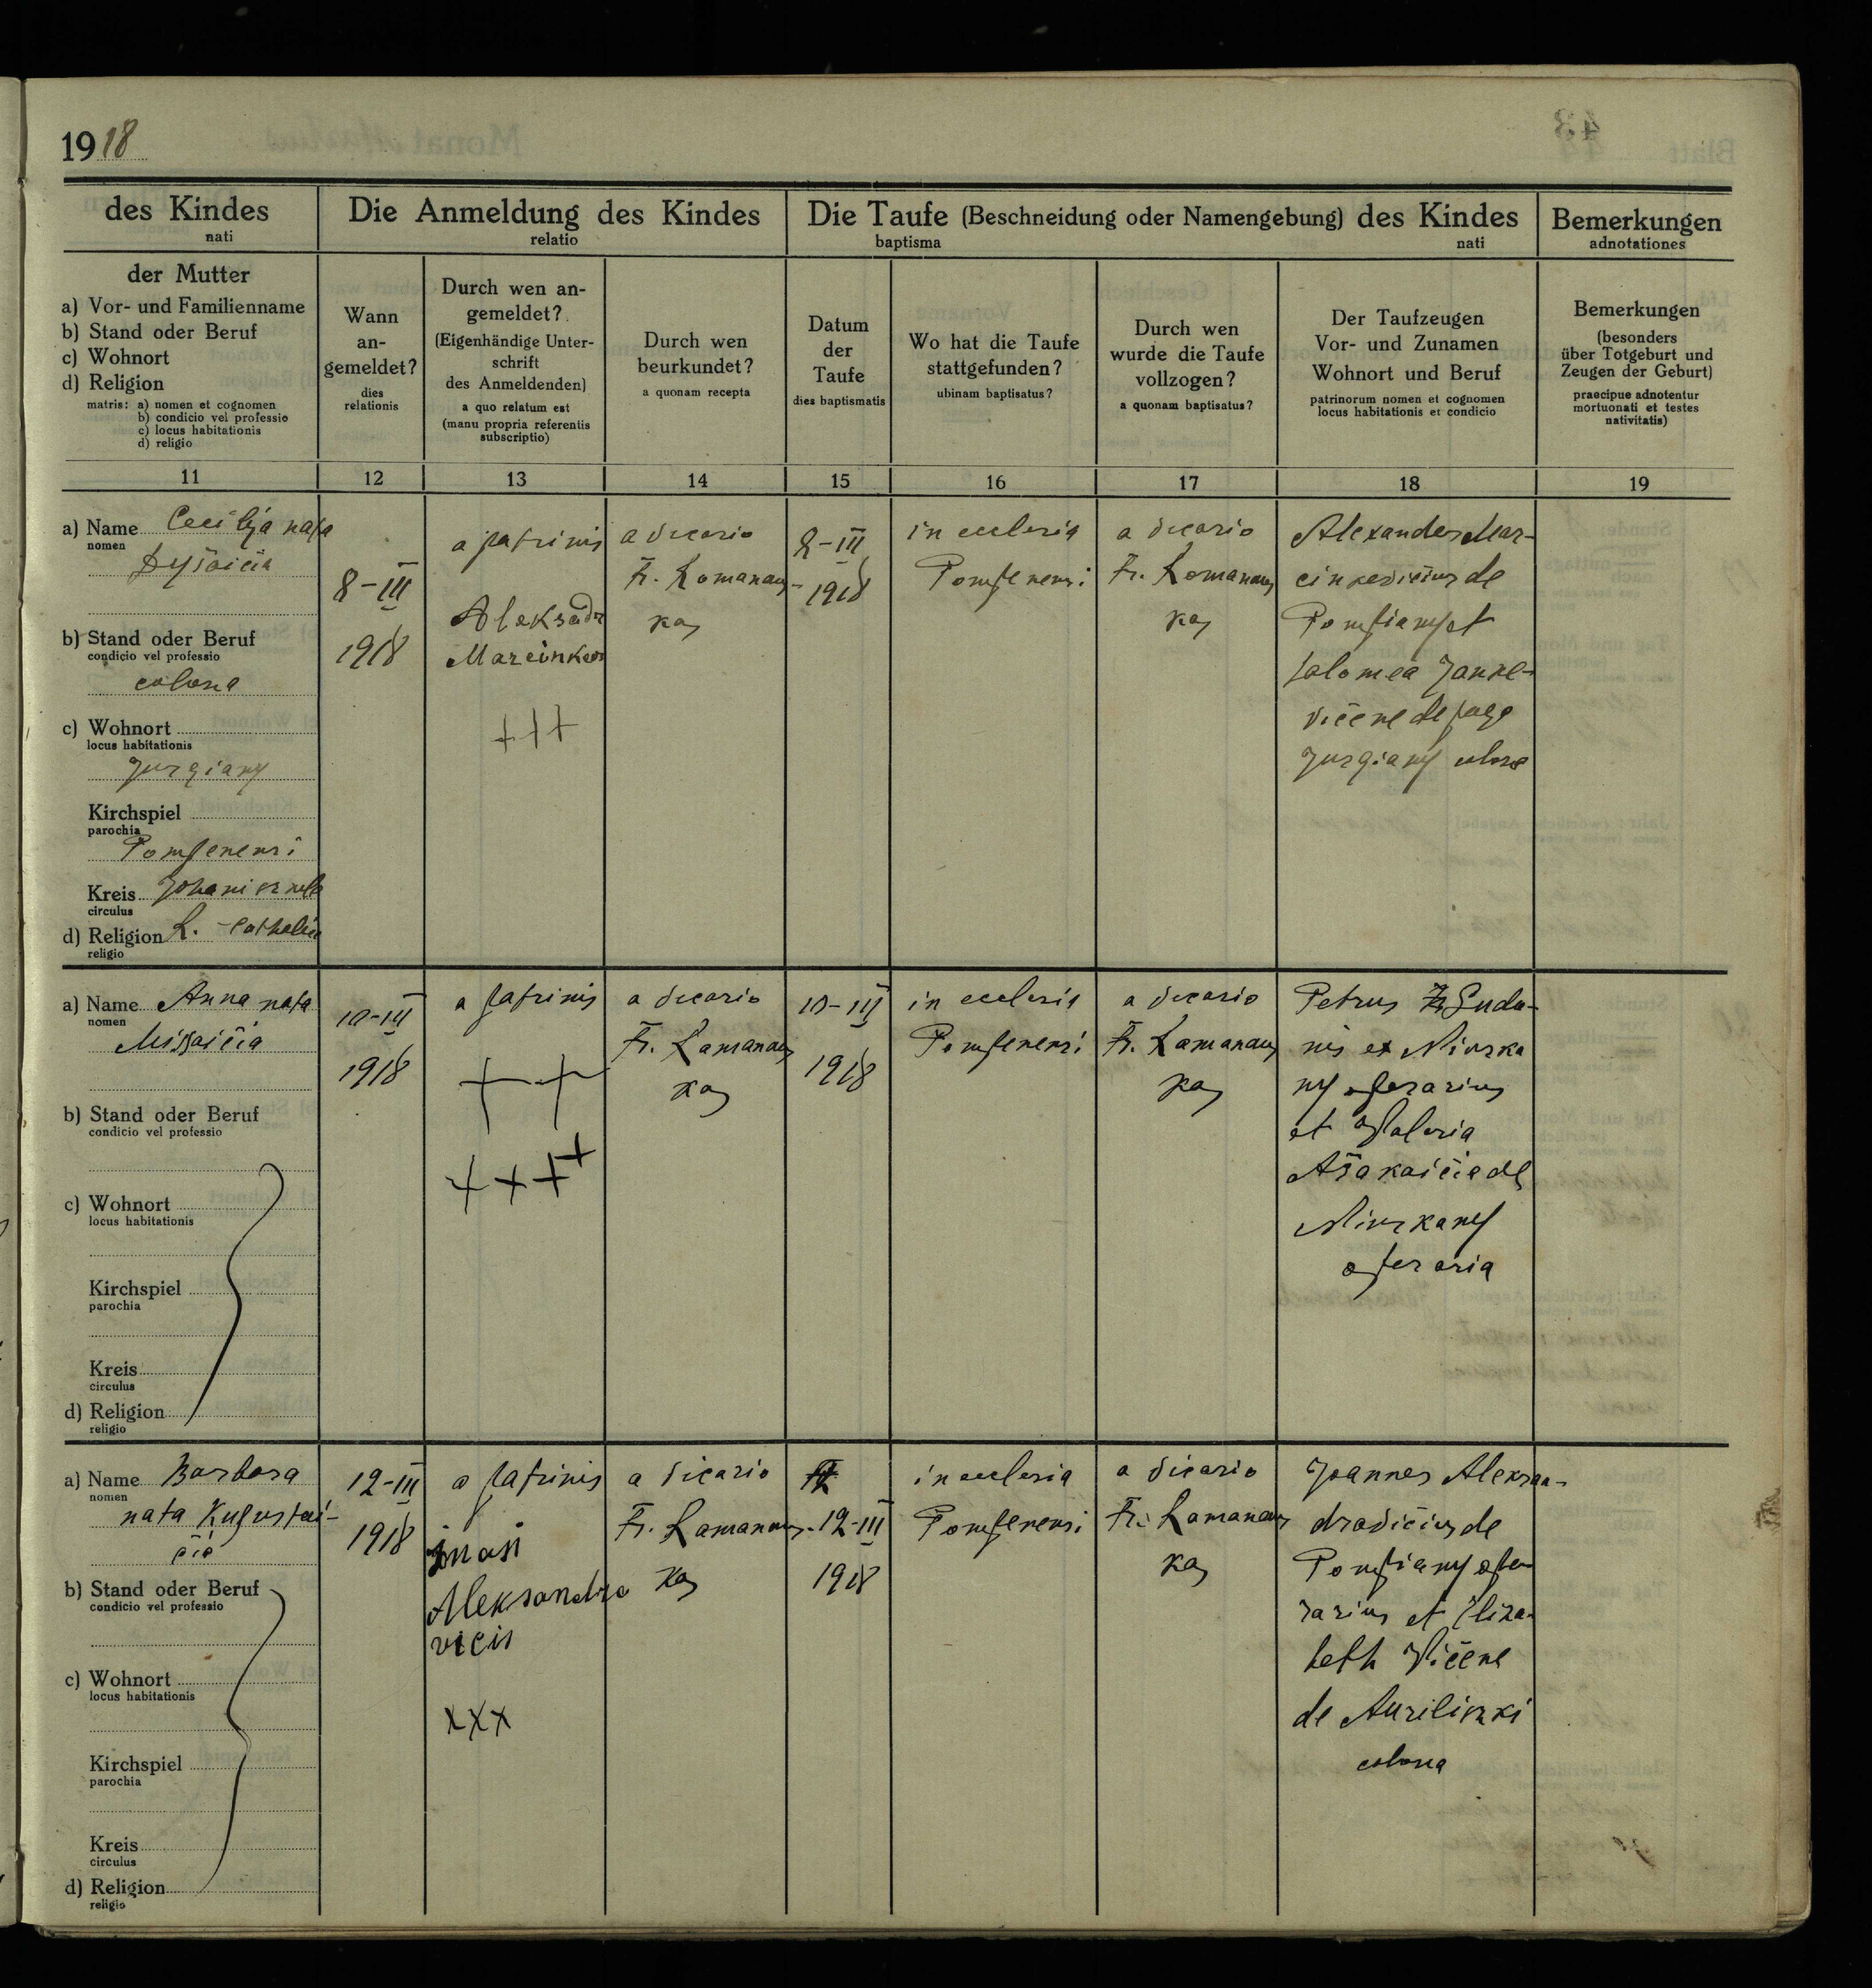 1918
des Kindes
nati
Die Anmeldung des Kindes
relatio
Die Taufe (Beschneidung oder Namengebung) des Kindes
baptisma nati
Bemerkungen
adnotationes
der Mutter
a) Vor- und Familienname
b) Stand oder Beruf
c) Wohnort
d) Religion
matris: a) nomen et cognomen
b) condicio vel professio
c) locus habitationis
d) religio
Wann
an-
gemeldet?
dies
relationis
Durch wen an-
gemeldet?
(Eigenhändige Unter-
schrift
des Anmeldenden)
a quo relatum est
(manu propria referentis
subscriptio)
Durch wen
beurkundet?
a quonam recepta
Datum
der
Taufe
dies baptismatis
Wo hat die Taufe
stattgefunden?
ubinam baptisatus?
Durch wen
wurde die Taufe
vollzogen?
a quonam baptisatus?
Der Taufzeugen
Vor- und Zunamen
Wohnort und Beruf
patrinorum nomen et cognomen
locus habitationis et condicio
Bemerkungen
(besonders
über Totgeburt und
Zeugen der Geburt)
praecipue adnotentur
mortuonati et testes
nativitatis)
11 12 13 14 15 16 17 18 19
a) Name Cecilja nata
nomen
b) Stand oder Beruf
condicio vel professio
colona
c) Wohnort
locus habitationis
Jurgiany
Kirchspiel
parochia
Pompenensi
Kreis
circulus
d) Religion R. Catholic
religio
8-III
1918
a patrinis
Aleksadr
Marcinkev
+++
a vicario
Fr. Ramanaus-
kas
8-III
1918
in ecclesia
Pompenensi
a vicario
Fr. Ramanaus
kas
Alexander Mar-
cinkevičius de
Pompiany et
Salomea Janke-
vičene de pago
Jurgiany colona
a) Name Anna nata
nomen
b) Stand oder Beruf
condicio vel professio
c) Wohnort
locus habitationis
Kirchspiel
parochia
Kreis
circulus
d) Religion
religio
10-III
1918
a patrinis
++
++++
a vicario
Fr. Ramanaus
kas
10-III
1918
in ecclesia
Pompenensi
a vicario
Fr. Ramanaus
kas
Petrus
ny operarius
et Valeria
de
operaria
a) Name Barbara
nomen
nata
b) Stand oder Beruf
condicio vel professio
c) Wohnort
locus habitationis
Kirchspiel
parochia
Kreis
circulus
d) Religion
religio
12-III
1918
a patrinis
Aleksandra
vicis
xxx
a vicario
Fr. Ramanaus-
kas
12-III
1918
in ecclesia
Pompenensi
a vicario
Fr. Ramanaus
kas
Joannes Aleksan-
dravičius de
Pompiany ope-
rarius et Eliza-
beth Vičene
de
colona